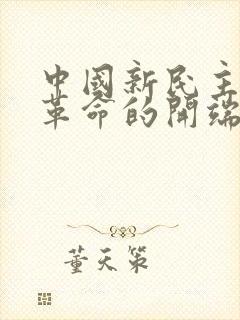 中國新民主
革命的開端
董天策